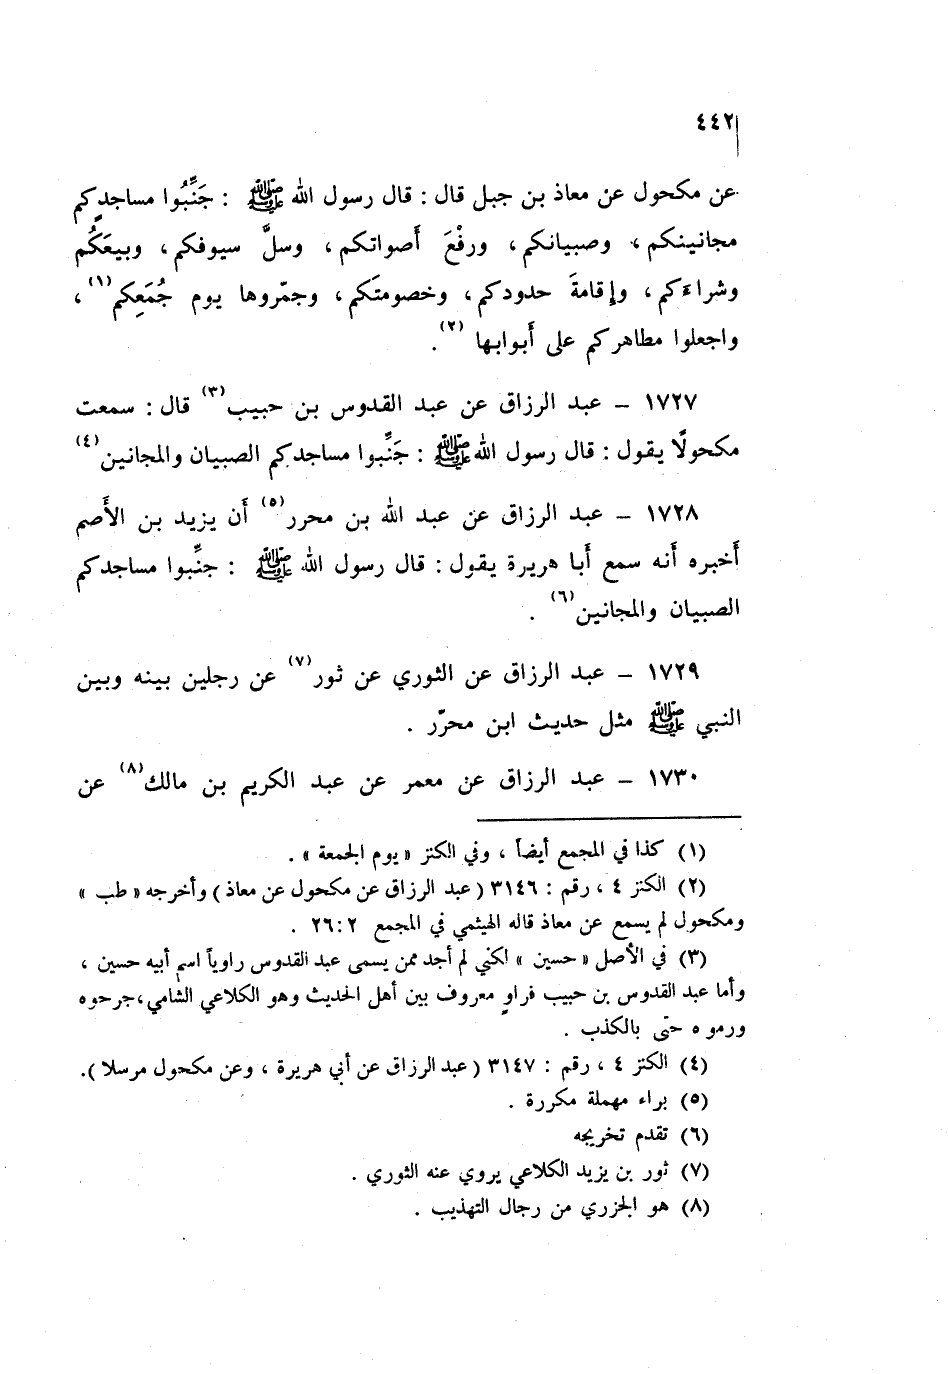 ٤٤٢
عن مكحول عن معاذ بن جبل قال : قال رسول الله ﷺ : جَنِّبُوا مساجدكم
مجانينكم ، وصبيانكم ، ورفْعَ أَصواتكم ، وسلَّ سيوفكم ، وبيعَكُم
وشراءَكم ، وإِقامةَ حدودكم ، وخصومتَكم ، وجمّروها يوم جُمَعِكم (١) ،
واجعلوا مطاهركم على أَبوابها (٢) .
١٧٢٧ – عبد الرزاق عن عبد القدوس بن حبيب (٣) قال : سمعت
مكحولًا يقول : قال رسول الله ﷺ : جَنِّبوا مساجدكم الصبيان والمجانين (٤)
١٧٢٨ – عبد الرزاق عن عبد الله بن محرر (٥) أَن يزيد بن الأَصم
أَخبره أَنه سمع أَبا هريرة يقول : قال رسول الله ﷺ : جنِّبوا مساجدكم
الصبيان والمجانين (٦) .
١٧٢٩ – عبد الرزاق عن الثوري عن ثور (٧) عن رجلين بينه وبين
النبي ﷺ مثل حديث ابن محرّر .
١٧٣٠ – عبد الرزاق عن معمر عن عبد الكريم بن مالك (٨) عن
(١) كذا في المجمع أيضاً ، وفي الكنز « يوم الجمعة » .
(٢) الكنز ٤ ، رقم : ٣١٤٦ ( عبد الرزاق عن مكحول عن معاذ ) وأخرجه « طب »
ومكحول لم يسمع عن معاذ قاله الهيثمي في المجمع ٢ : ٢٦ .
(٣) في الأصل « حسين » لكني لم أجد ممن يسمى عبد القدوس راوياً اسم أبيه حسين ،
وأما عبد القدوس بن حبيب فراوٍ معروف بين أهل الحديث وهو الكلاعي الشامي ، جرحوه
ورموه حتى بالكذب .
(٤) الكنز ٤ ، رقم : ٣١٤٧ ( عبد الرزاق عن أبي هريرة ، وعن مكحول مرسلا ) .
(٥) براء مهملة مكررة .
(٦) تقدم تخريجه
(٧) ثور بن يزيد الكلاعي يروي عنه الثوري .
(٨) هو الجزري من رجال التهذيب .